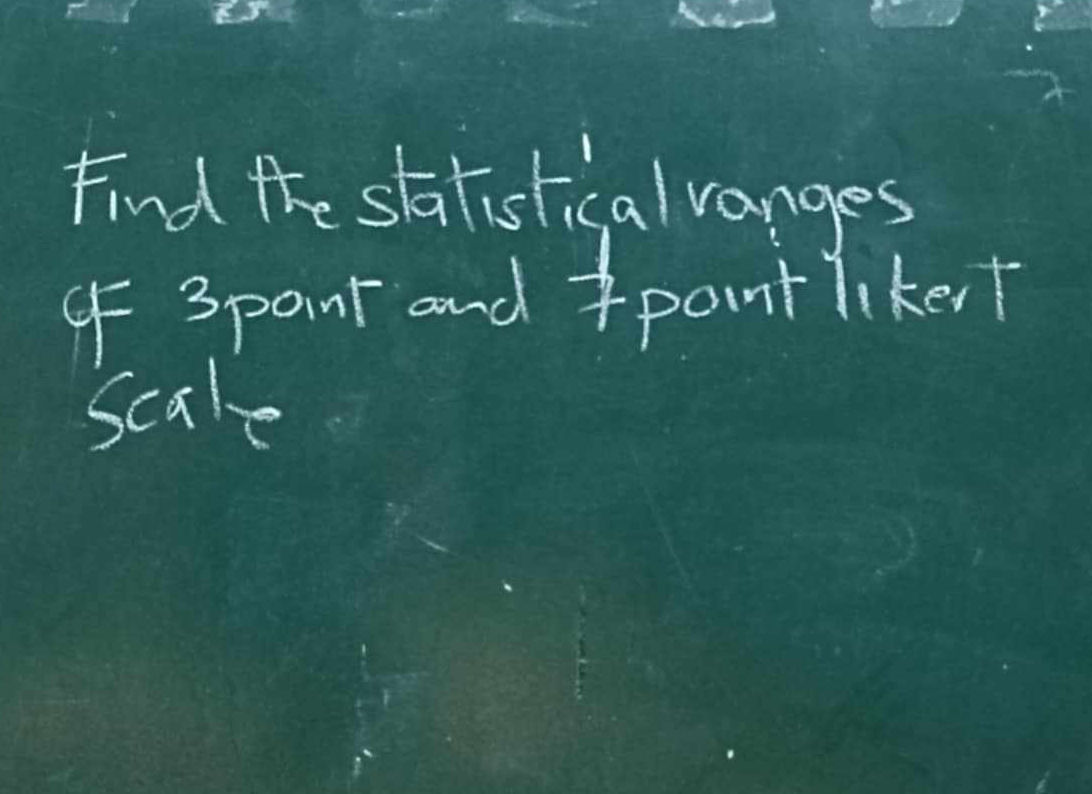 Find the statistical ranges
of 3 point and 7 point likert
scale